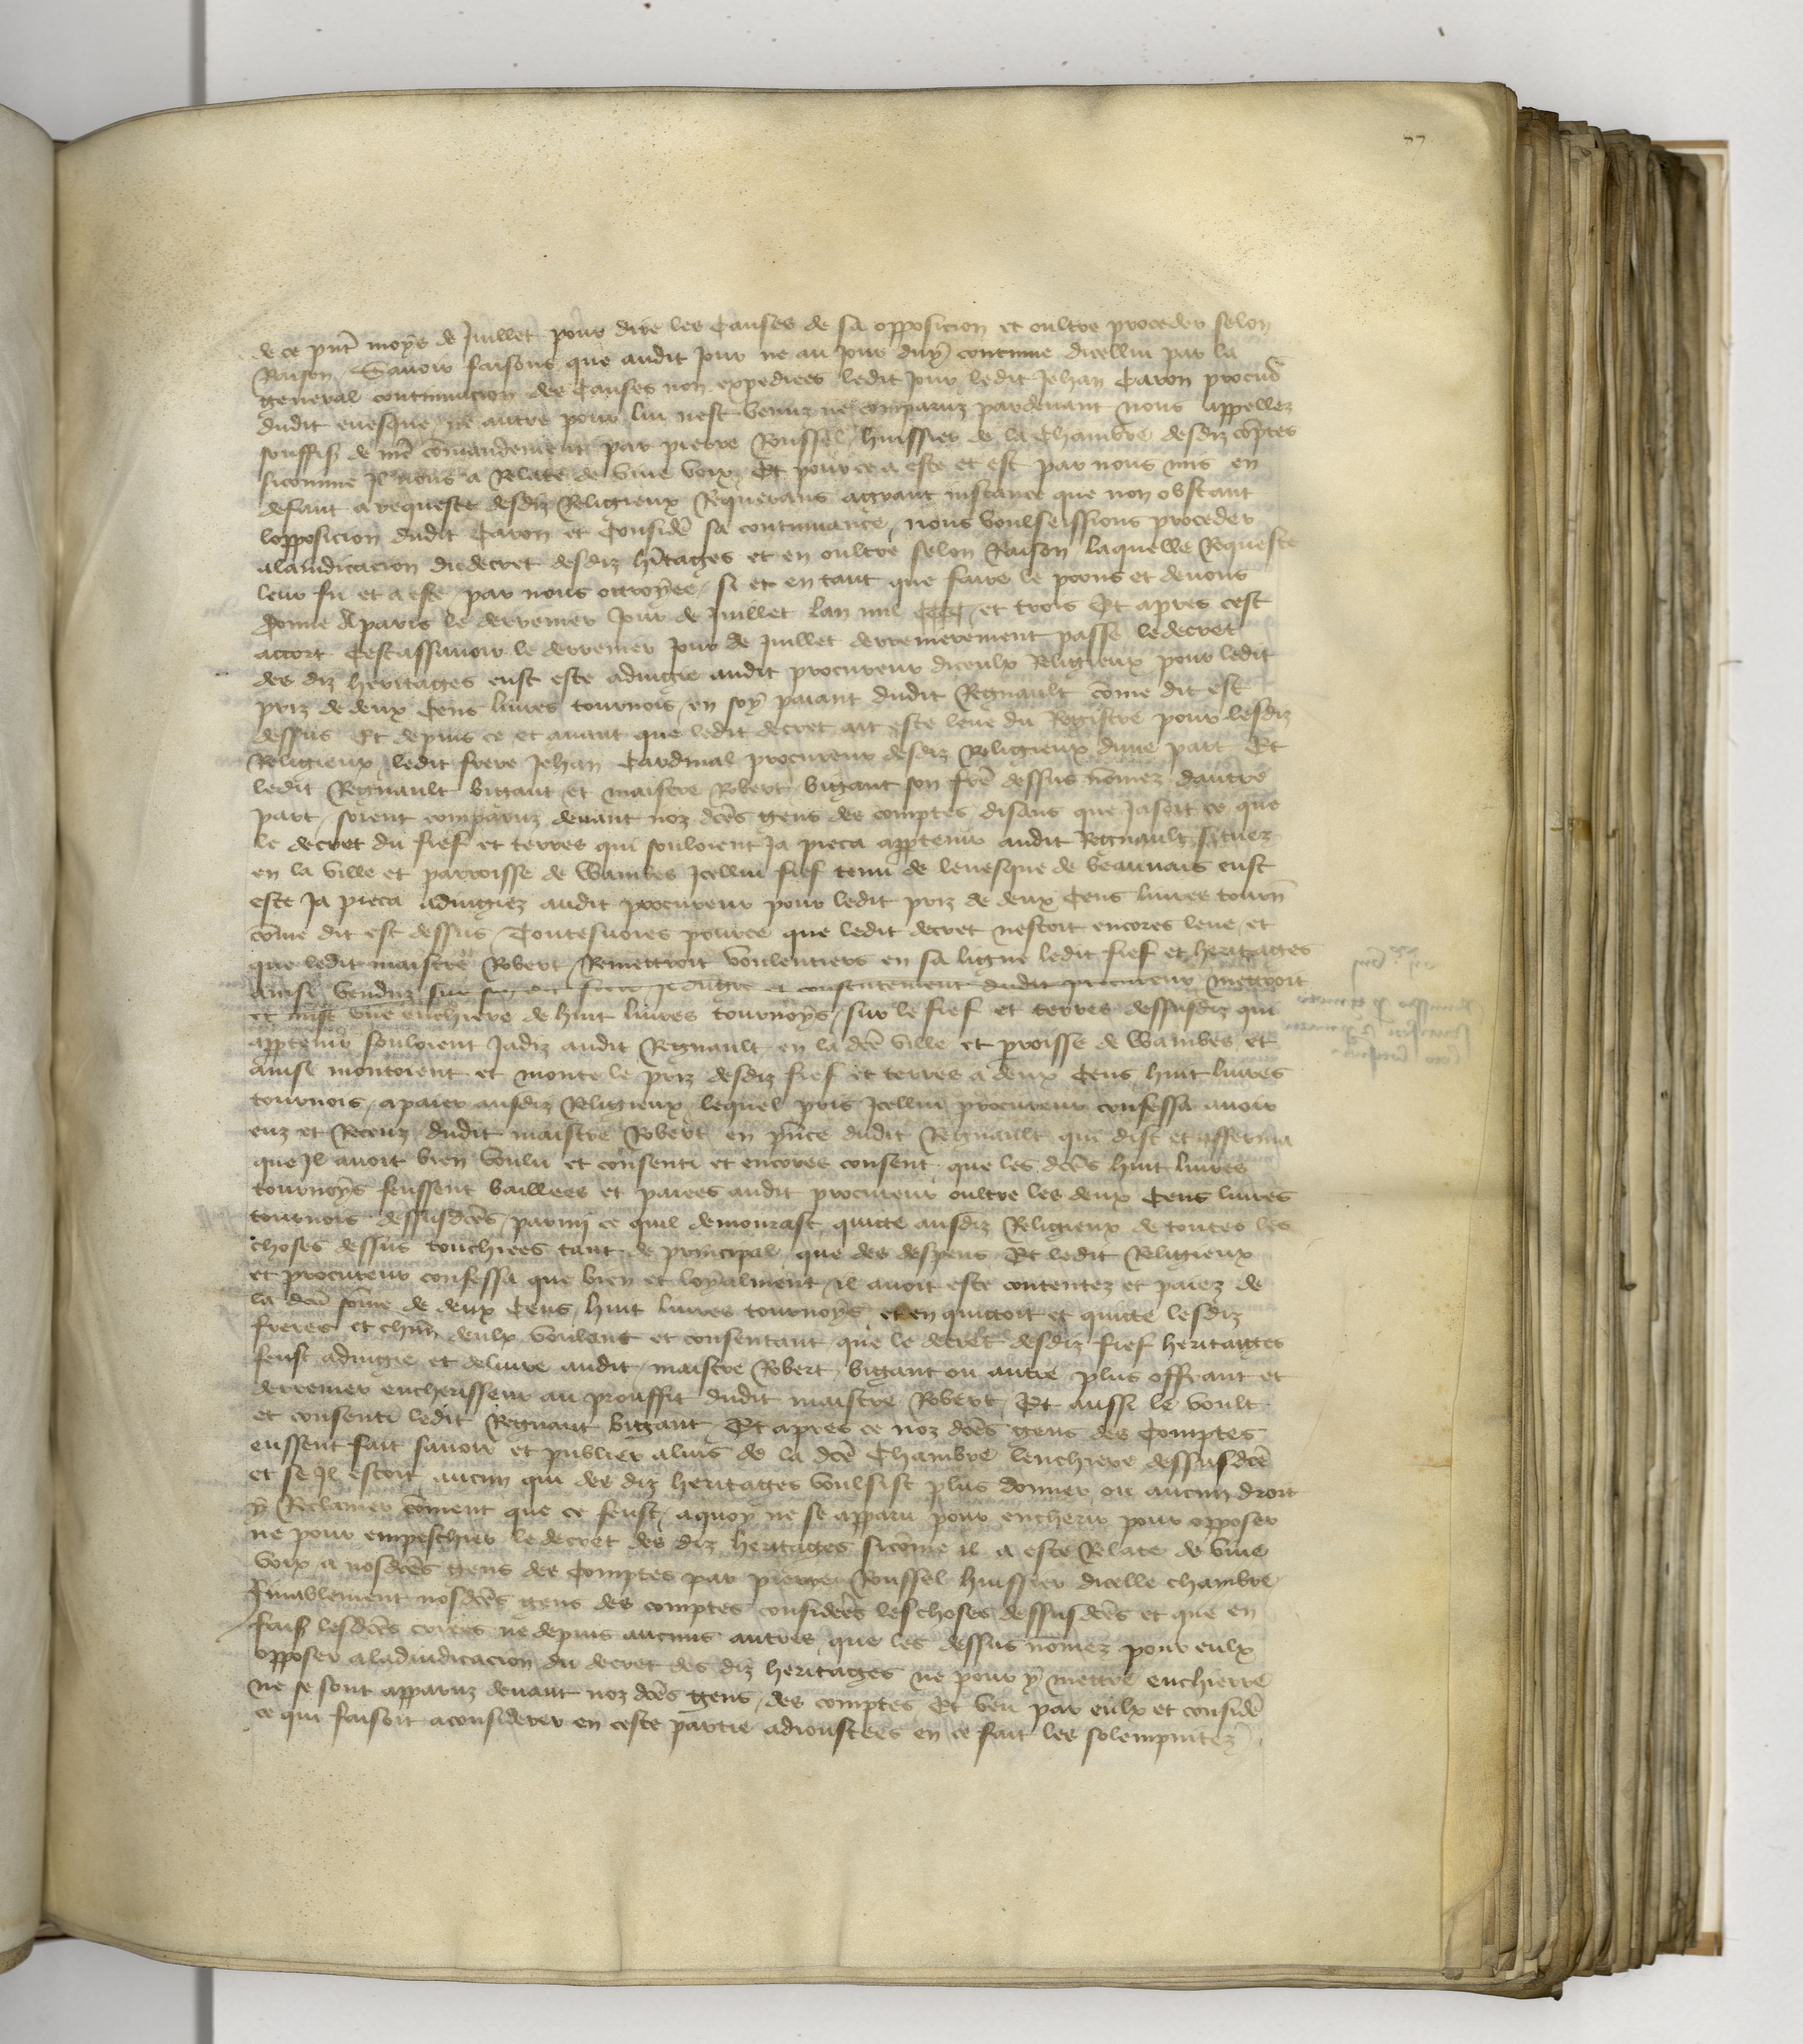 77
de ce pnt moys de Juillet pour dire les Causes de sa opposicion et oultre proceder selon
Raison, Sauoir faisons que audit Jour ne au Jour duy continue dicellui par la
general continuacion des Causes non expediees ledit Jour, ledit Jehan Caron procur
dudit euesque, ne autre pour lui nest venuz ne comparuz pardeuant nous appellez
souffis de nre comandement par pierre Roussel huissier de la Chambre desdiz coptes
sicomme Jl nous a Relate de viue voix, Et pource a este et est par nous mis en
defaut a requeste desdiz Religieux Requerans a grant instance que non obstant
lopposicion dudit Caron et Conside sa contumace, nous voulseissions proceder
a ladiudicacion du decret desdiz hitages et en oultre selon Raison laquelle Requeste
leur fu et a este par nous ottroyee, si et en tant que faire le pouns et deuons
Donne A paris le derrenier Jour de Juillet lan mil CCCC, et trois Et apres cest
accort Cestassauoir le derrenier Jour de Juillet derrenierement passe le decret
des diz heritages eust este adiugie audit procureur diceulx Religieux pour ledit
priz de deux Cens liures tournois, en soy paiant dudit Regnault come dit est
dessus Et depuis ce et auant que ledit decret ait este leue du Registre pour lesdiz
Religieux, ledit frere Jehan Cardinal procureur desdiz Religieux dune part Et
ledit Regnault bigant et maistre Robert bigant son fre dessus nomez dautre
part, soient comparuz deuant noz dces gens des comptes, disans que Jasoit ce que
le decret du fief et terres qui souloient Ja pieca apptenir audit Regnault, situez
en la ville et parroisse de Wambes Jcellui fief tenu de leuesque de beauuais eust
este Ja pieca adiugiez audit procureur pour ledit priz de deux Cens liures tourn
come dit est dessus, Toutesuoies pource que ledit decret nestoit encores leue, et
que ledit maistre Robert Remettroit voulentiers en sa ligne ledit fief et heritages
ainsi venduz et consentement dudit procureur mettroit
et mist vne enchiere de huit liures tournoys, sur le fief et terres dessusdiz qui
apptenir souloient Jadiz audit Regnault en la dce ville et proisse de Wambes, et
ainsi montoient et monte le priz desdiz fief et terres a deux Cens, huit liures
tournois, a paier ausdiz Religieux lequel pris Jcellui procureur confessa auoir
euz et Receuz dudit maistre Robert en pnce dudit Regnault qui dist et afferma
que Jl auoit bien voulu et consenti et encores consent que les dces huit liures
tournoys feussent baillees et paiees audit procureur oultre les deux Cens liures
tournois dessusdces, parmi ce quil demourast quitte ausdiz Religieux de toutes les
choses dessus touchiees tant de principal que des despens Et ledit Religieux
et procureur confessa que bien et loyalment, il auoit este contentez et paiez de
la dce some de deux Cens, huit liures tournoys, et en quittoit et quitte lesdiz
freres et chun deulx voulant et consentant que le decret desdiz fief heritages
feust adiugie et deliure audit maistre Robert bigant ou autre plus offrant et
derrenier encherisseur au prouffit dudit maistre Robert, Et aussi le voult
et consenti ledit Regnaut bigant, Et apres ce noz dces gens des Comptes
eussent fait sauoir et publier a luis de la dce Chambre lenchiere dessusdce
et se Jl estoit aucun qui des diz heritages voulsist plus donner, ou aucun droit
y Reclamer coment que ce feust, a quoy ne se apparu pour encherir pour opposer
ne pour empeschier le decret des diz heritages sicome il a este Relate de viue
voix a nosdces gens des Comptes par pierre Roussel huissier dicelle chambre
Finablement nosdces gens des comptes consideres les choses dessusdces et que en
fais lesdces criees ne depuis aucuns autres, que les dessus nomez pour eulx
opposer a ladiudicacion du decret des diz heritages ne pour y mettre enchierre
ne se sont apparuz deuant noz dces gens, des comptes Et veu par eulx et conside
ce qui faisoit a considerer en ceste partie adioustees en ce fait les solempnitez